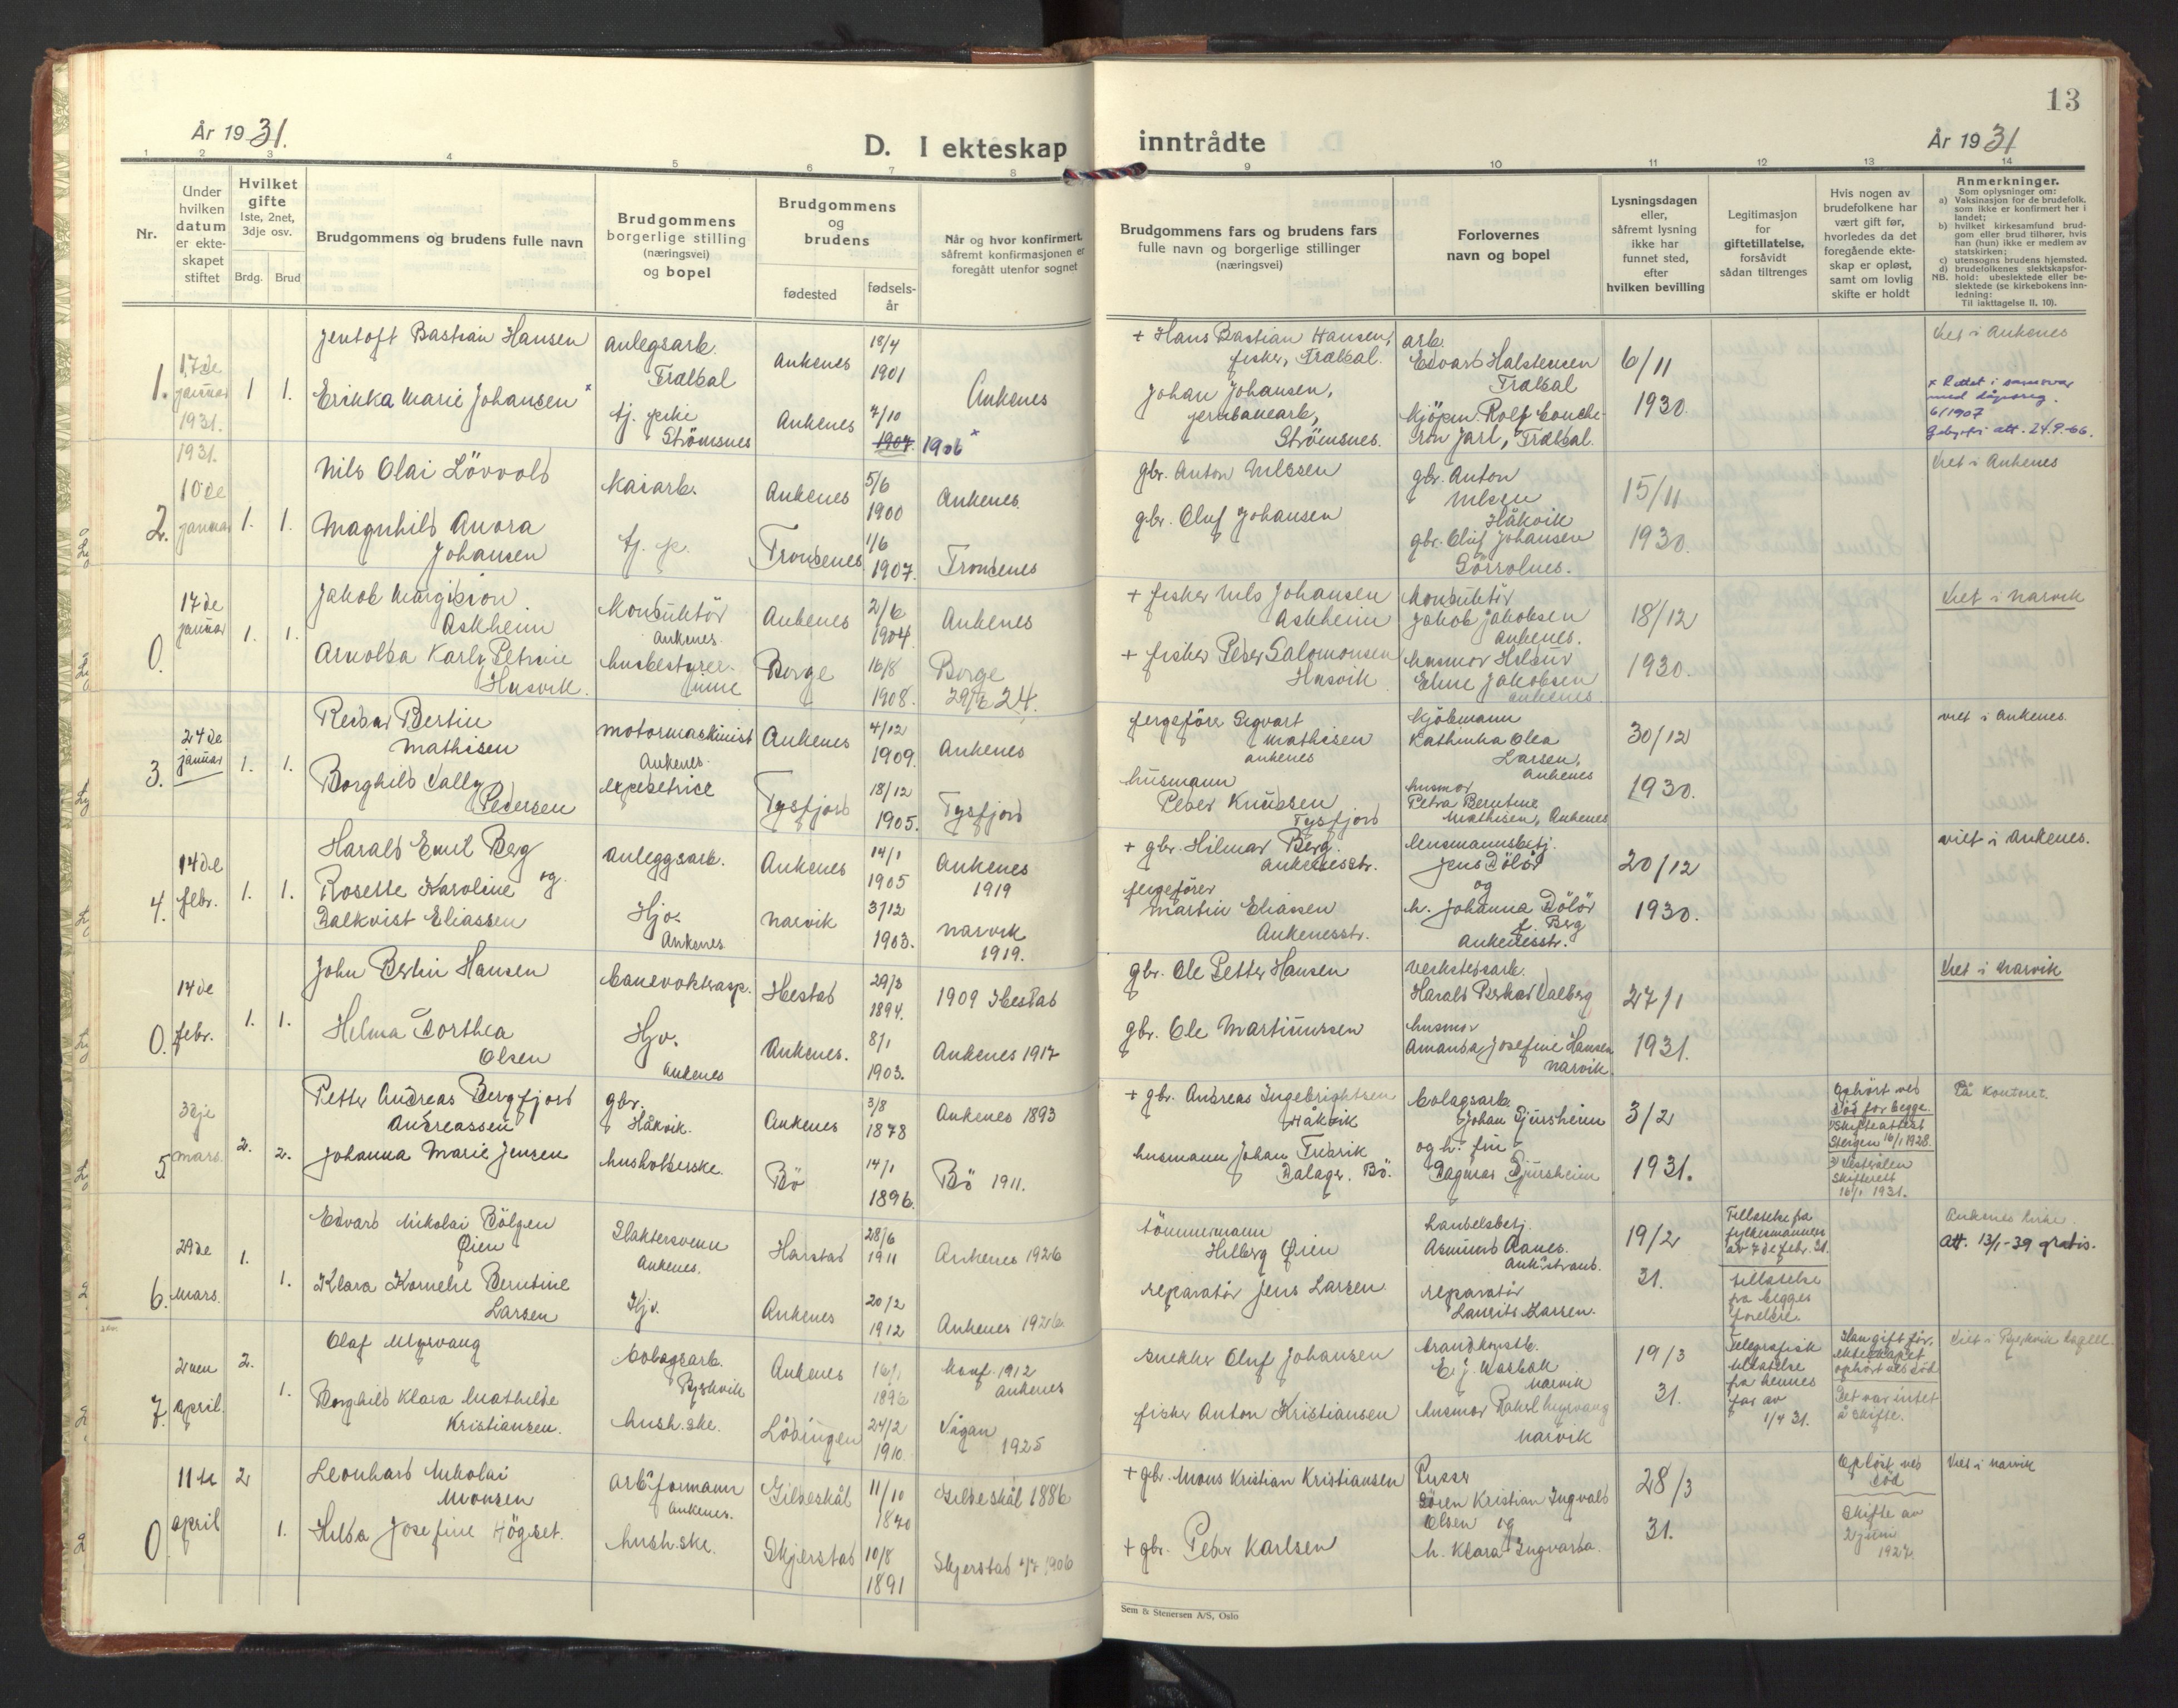 13
År 1931.
D. I ekteskap inntrådte
År 1931
1 2 3 4 5 6 7 8 9 10 11 12 13 14
Nr.
Under
hvilken
datum
er ekte-
skapet
stiftet
Hvilket
gifte
1ste, 2net,
3dje osv.
Brdg. Brud
Brudgommens og brudens fulle navn
Brudgommens
borgerlige stilling
(næringsvei)
og bopel
Brudgommens
og
brudens
fødested
fødsels-
år
Når og hvor konfirmert,
såfremt konfirmasjonen er
foregått utenfor sognet
Brudgommens fars og brudens fars
fulle navn og borgerlige stillinger
(næringsvei)
Forlovernes
navn og bopel
Lysningsdagen
eller,
såfremt lysning
ikke har
funnet sted,
efter
hvilken bevilling
Legitimasjon
for
giftetillatelse,
forsåvidt
sådan tiltrenges
Hvis nogen av
brudefolkene har
vært gift før,
hvorledes da det
foregående ekte-
skap er opløst,
samt om lovlig
skifte er holdt
Anmerkninger.
Som oplysninger om:
a) Vaksinasjon for de brudefolk,
som ikke er konfirmert her i
landet;
b) hvilket kirkesamfund brud-
gom eller brud tilhører, hvis
han (hun) ikke er medlem av
statskirken;
c) utensogns brudens hjemsted.
d) brudefolkenes slektskapsfor-
NB. hold: ubeslektede eller be-
slektede (se kirkebokens inn-
ledning:
Til iakttagelse II, 10).
1. 17de januar 1931. 1 1.
Jentoft Bastian Hansen
anlegsarb.
Trældal
Ankenes
18/4
1901
+ Hans Bastian Hansen,
fisker, Trældal.
arb.
Edvard Halstensen
Trældal
6/11
1930.
Viet i Ankenes
Erikka Marie Johansen x
tj. pike
Strömsnes
Ankenes
7/10
1907. 1906 x
Ankenes
Johan Johansen,
jernbanearb,
Strömsnes.
Kjöpm. Rolf
Jarl, Trældal.
x Rettet i samsvar
med dåpsreg.
6/1907
att. 24.9.66.
2. 1931. 10de januar 1. 1.
Nils Olai Lövvold
Kaiarb.
Ankenes
5/6
1900
Ankenes.
gbr. Anton Nilssen
gbr. Anton
Nilsen
Håkvik
15/11
1930.
Viet i Ankenes
Magnhild Anora
Johansen
tj. p.
Trondenes
1/6
1907.
Trondenes
gbr. Oluf Johansen
gbr. Oluf Johansen
0. 17de januar 1. 1.
Jakob
Askheim
Konduktör
Ankenes
Ankenes
2/6
1904.
Ankenes
+ fisker Nils Johansen
Askheim
Konduktör
Jakob Jakobsen
Ankenes.
18/12
1930.
Viet i Narvik
Arnolda Karly Petrine
Husvik.
husbestyrer-
inne
Borge
16/8
1908.
Borge
24.
+ fisker Peder Salomonsen
Husvik
husmor
Eline Jakobsen
Ankenes
3. 24de januar 1. 1.
Reidar Bertin
Mathisen
motormaskinist
Ankenes.
Ankenes
4/12
1909.
Ankenes
fergeförer Sigvart
Mathisen
Ankenes
Kjöbmann
Kathinka Olea
Larsen,
Ankenes
30/12
1930.
viet i Ankenes.
Borghild Vally
Pedersen
expeditrice
Tysfjord
18/12
1905.
Tysfjord
husmann
Peder Knudsen
Tysfjord
husmor
Petra Berntine
Mathisen, Ankenes
4. 14de febr. 1. 1.
Harald Emil Berg
og
anleggsarb.
Ankenes
14/1
1905
Ankenes
1919
+ gbr. Hilmar Berg.
Ankenesstr.
lensmannsbetj.
Jens Dölör
og
20/12
1930.
viet i Ankenes.
Roselle Karoline
Dalkvist Eliassen
Hjv.
Ankenes
Narvik
3/12
1903.
Narvik
1919.
fergeförer
Martin Eliassen
Ankenesstr.
h. Johanna Dölör
f. Berg
Ankenesstr.
0. 14de febr. 1. 1.
John Bertin Hansen
banevokterasp.
Ibestad
29/3
1894.
1909 Ibestad
gbr. Ole Petter Hansen
verkstedsarb.
Harald Dalberg
27/1
1931.
Viet i Narvik
Helma Dorthea
Olsen
Hjv.
Ankenes
Ankenes.
8/1
1903.
Ankenes 1917
gbr. Ole Martinussen
husmor
Amanda Josefine Hansen
Narvik.
5. 3dje mars. 2. 2.
Petter Andreas Bergfjord
Andreassen
gbr.
Håkvik.
Ankenes
3/8
1878
Ankenes 1893
+ gbr. Andreas Ingebrigtsen
Håkvik
bolagsarb.
Johan Gjursheim
3/2
1931.
Ophört ved
död for begge.
1) Skifteattest
Steigen 16/1 1928.
På kontoret.
Johanna Marie Jensen
husholderske.
Bö
14/1
1896.
Bö 1911.
husmann Johan Fredrik
Dalagr. Bö.
og h. fru
Dagmar Gjursheim
2) Vesterålen
Skifterett
16/1 1931.
6. 29de mars. 1. 1.
Edvard Nikolai Dölgen
Öien
Slaktersvenn
Ankenes.
Harstad
28/6
1911
Ankenes 1926
tömmermann
Hilberg Öien
handelsbetj.
Asmund Aanes.
Ank.strand.
19/2
31.
Tillatelse fra
fylkesmannen
av 7de febr. 31.
Ankenes kirke.
Att. 13/1-39 gratis.
Klara Kornelie Berntine
Larsen
Hjv.
Ankenes
20/2
1912
Ankenes 1926
reparatör Jens Larsen
reparatör
Laurits Larsen.
tillatelse
fra begges
foreldre.
7. 2nen april. 2. 1.
Olaf Myrvang
bolagsarb.
Bjerkvik
Ankenes
16/1
1896
Konf. 1912
Ankenes
snekker Oluf Johansen
E. J. Karbäk
Narvik
19/3
31.
Telegrafisk
tillatelse
fra hennes
far av
1/4 31.
Han gift för.
ekteskapet
ophört ved död
Det var intet
å skifte.
Viet i Bjerkvik kapell
Borghild Klara Mathilde
Kristiansen.
hush.ske.
Lödingen
24/2
1910.
Vågan
1925
fisker Anton Kristiansen
husmor Rakel Myrvang
Narvik
0 11te april 2 1.
Leonhard Nikolai
Monsen
arb.formann
Ankenes.
Gildeskål
11/10
1870
Gildeskål 1886
+ gbr. Mons Kristian Kristiansen
Pusser
Sören Kristian Ingvald
Olsen og
28/3
31.
Oplöst ved
död
Skifte av
2 juni
1927.
Viet i Narvik
Hilda Josefine Högset.
hush.ske.
Skjerstad
10/8
1891
Skjerstad 1906
+ gbr. Peder Karlsen
h. Klara Ingvarda.
Sem & Stenersen A/S, Oslo